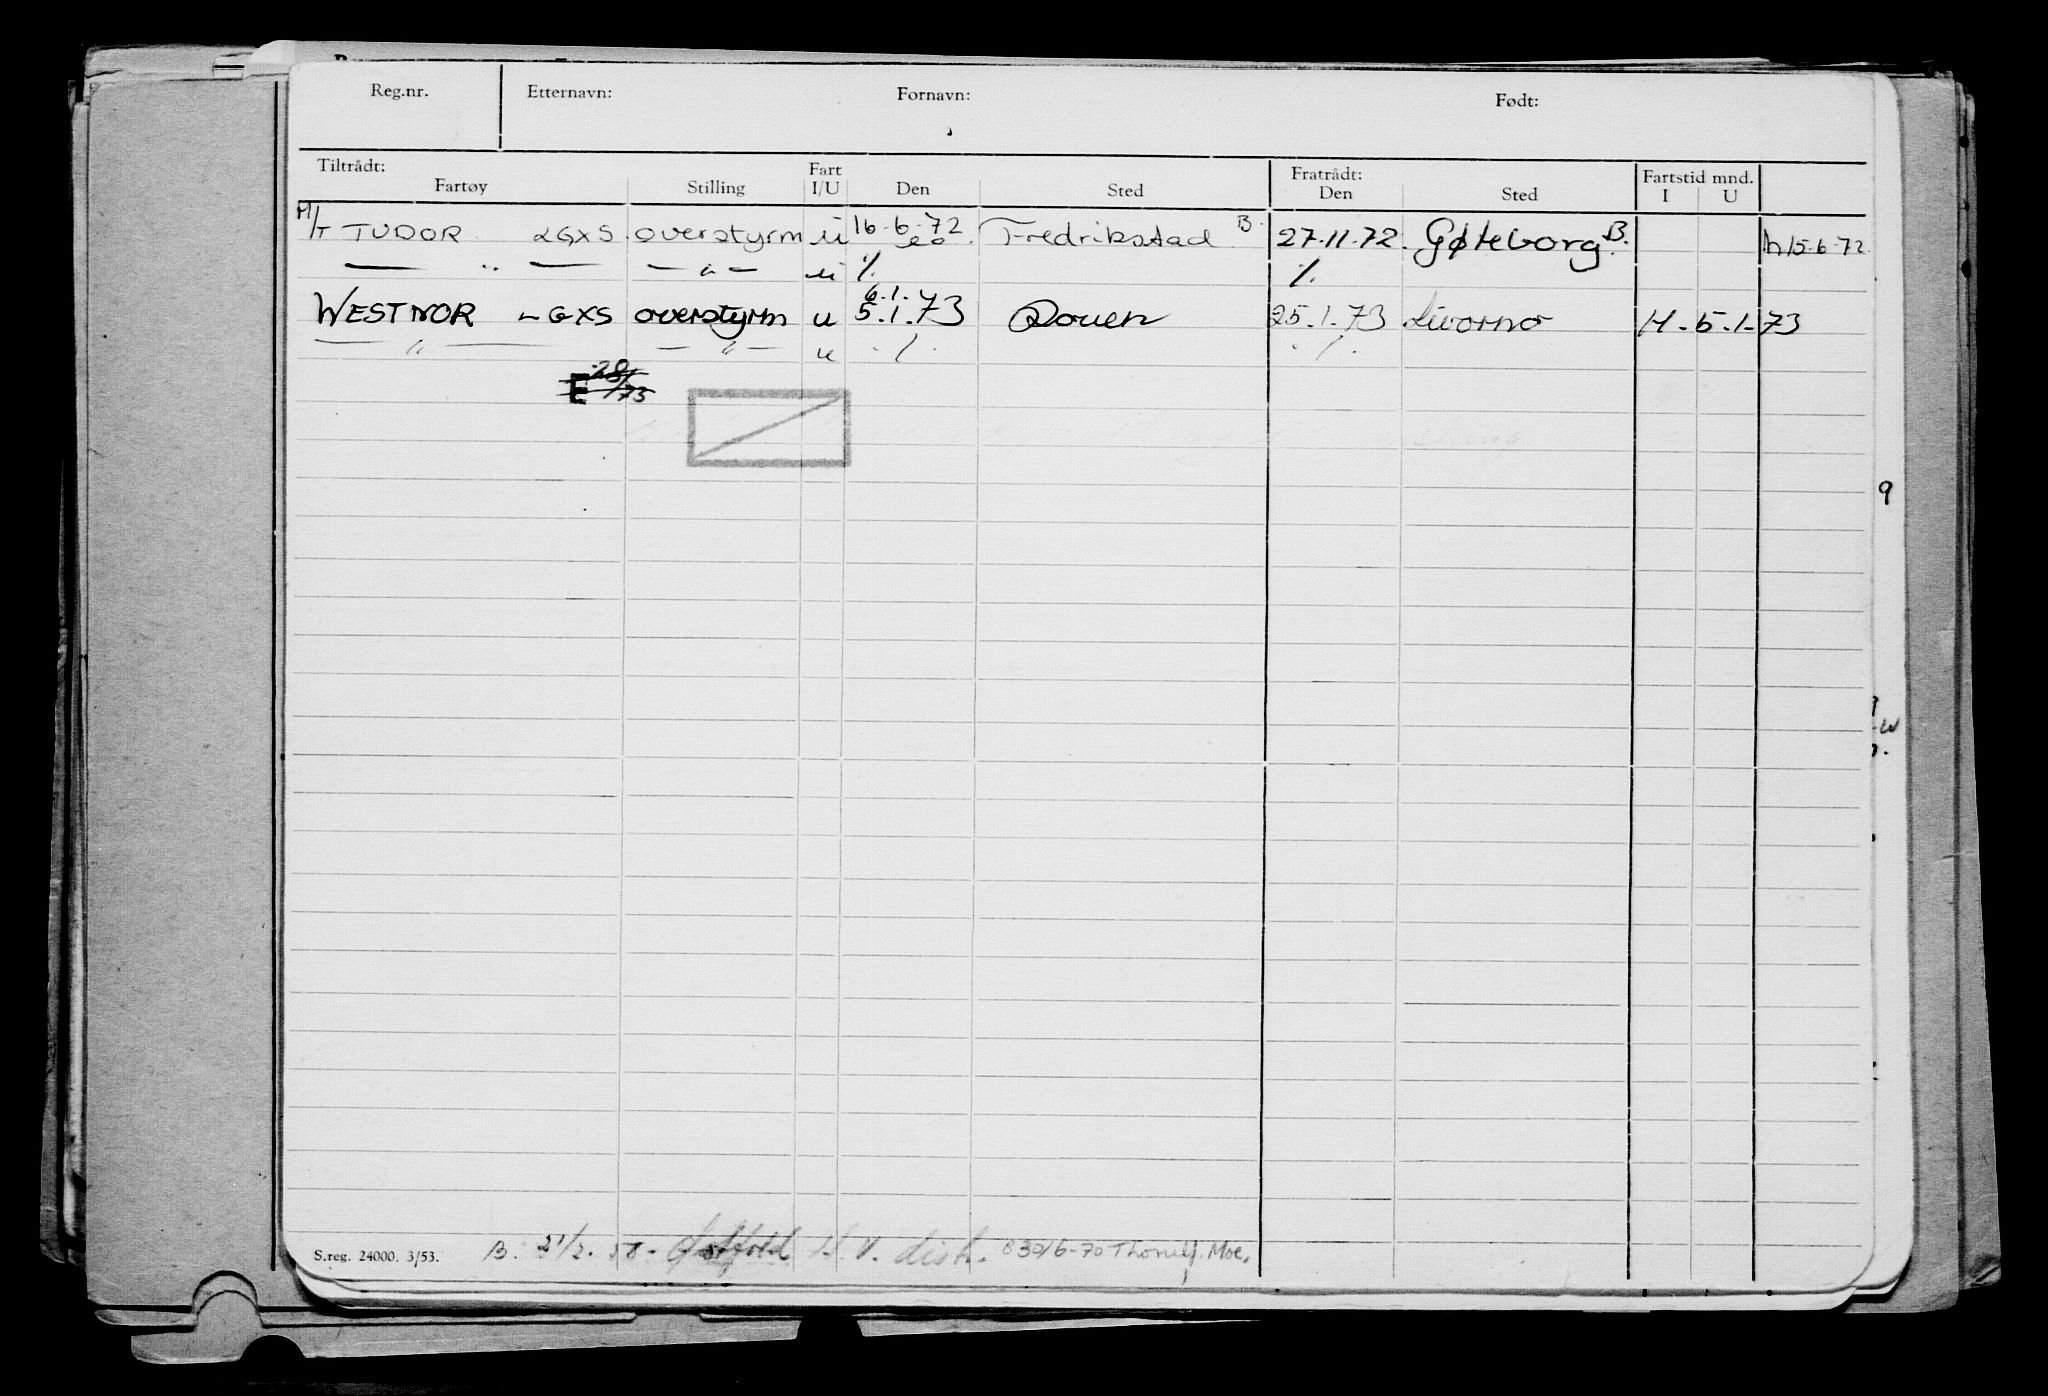 Reg.nr. Etternavn: Fornavn: Født:
Tiltrådt: Fart Fratrådt: Fartstid mnd.
Fartøy Stilling I/U Den Sted Den Sted I U
M/T TUDOR LGXS overstyrm u 16-6-72 Fredrikstad B. 27-11-72. Gøteborg B. h 15-6-72
— " — — " — u ./. ./.
6.1.
WESTNOR LGXS overstyrm u 5.1.73 Rouen 25.1.73 Livorno H. 5.1.73
— " — — " — u ./. ./.
E 28/73
9
S.reg. 24000. 3/53. B. 21/2. 58. Østfold H.V. dist. 30/6-70 Thorulf Moe.